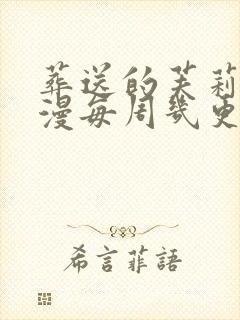 葬送的芙莉
漫每周几更
希言菲語